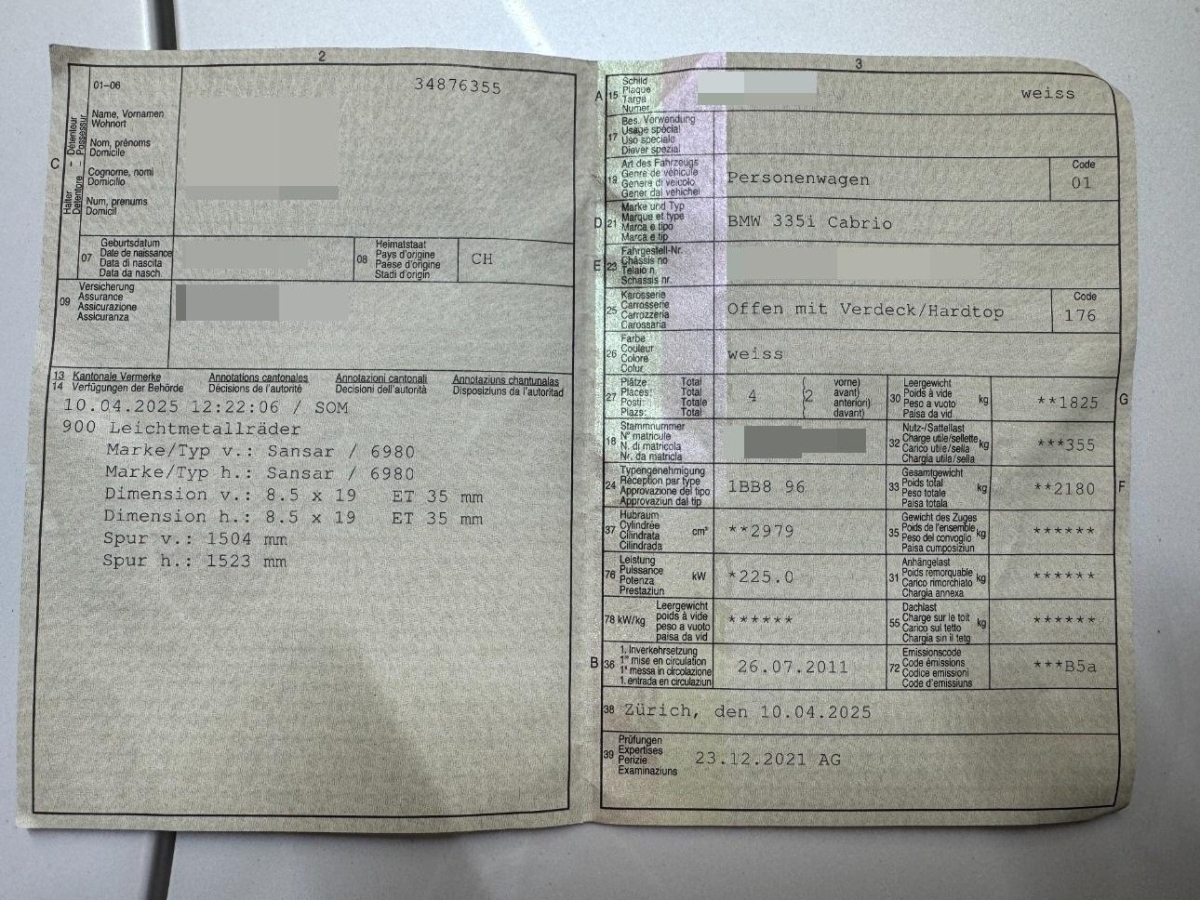 2
01–06
34876355
C
Halter – Détenteur
Detentore – Possessur
Name, Vornamen
Wohnort
Nom, prénoms
Domicile
Cognome, nomi
Domicilio
Num, prenums
Domicil
07
Geburtsdatum
Date de naissance
Data di nascita
Data da nasch.
08
Heimatstaat
Pays d'origine
Paese d'origine
Stadi d'origin
CH
09
Versicherung
Assurance
Assicurazione
Assicuranza
13 Kantonale Vermerke Annotations cantonales Annotazioni cantonali Annotaziuns chantunalas
14 Verfügungen der Behörde Décisions de l'autorité Decisioni dell'autorità Disposiziuns da l'autoritad
10.04.2025 12:22:06 / SOM
900 Leichtmetallräder
Marke/Typ v.: Sansar / 6980
Marke/Typ h.: Sansar / 6980
Dimension v.: 8.5 x 19 ET 35 mm
Dimension h.: 8.5 x 19 ET 35 mm
Spur v.: 1504 mm
Spur h.: 1523 mm
3
A 15
Schild
Plaque
Targa
Numer
weiss
17
Bes. Verwendung
Usage spécial
Uso speciale
Diever spezial
19
Art des Fahrzeugs
Genre de véhicule
Genere di veicolo
Gener dal vehichel
Personenwagen
Code
01
D 21
Marke und Typ
Marque et type
Marca e tipo
Marca e tip
BMW 335i Cabrio
E 23
Fahrgestell-Nr.
Châssis no
Telaio n.
Schassis nr.
25
Karosserie
Carrosserie
Carrozzeria
Carossaria
Offen mit Verdeck/Hardtop
Code
176
26
Farbe
Couleur
Colore
Colur
weiss
27
Plätze: Total
Places: Total
Posti: Totale
Plazs: Total
4
(2
vorne)
avant)
anteriori)
davant)
30
Leergewicht
Poids à vide
Peso a vuoto
Paisa da vid
kg
**1825
G
18
Stammnummer
N° matricule
N. di matricola
Nr. da matricla
32
Nutz-/Sattellast
Charge utile/sellette
Carico utile/sella
Chargia utila/sella
kg
***355
24
Typengenehmigung
Réception par type
Approvazione del tipo
Approvaziun dal tip
1BB8 96
33
Gesamtgewicht
Poids total
Peso totale
Paisa totala
kg
**2180
F
37
Hubraum
Cylindrée
Cilindrata
Cilindrada
cm³
**2979
35
Gewicht des Zuges
Poids de l'ensemble
Peso del convoglio
Paisa cumposiziun
kg
******
76
Leistung
Puissance
Potenza
Prestaziun
kW
*225.0
31
Anhängelast
Poids remorquable
Carico rimorchiato
Chargia annexa
kg
******
78 kW/kg
Leergewicht
poids à vide
peso a vuoto
paisa da vid
******
55
Dachlast
Charge sur le toit
Carico sul tetto
Chargia sin il tetg
kg
******
B 36
1. Inverkehrsetzung
1re mise en circulation
1a messa in circolazione
1. entrada en circulaziun
26.07.2011
72
Emissionscode
Code émissions
Codice emissioni
Code d'emissiuns
***B5a
38 Zürich, den 10.04.2025
39
Prüfungen
Expertises
Perizie
Examinaziuns
23.12.2021 AG